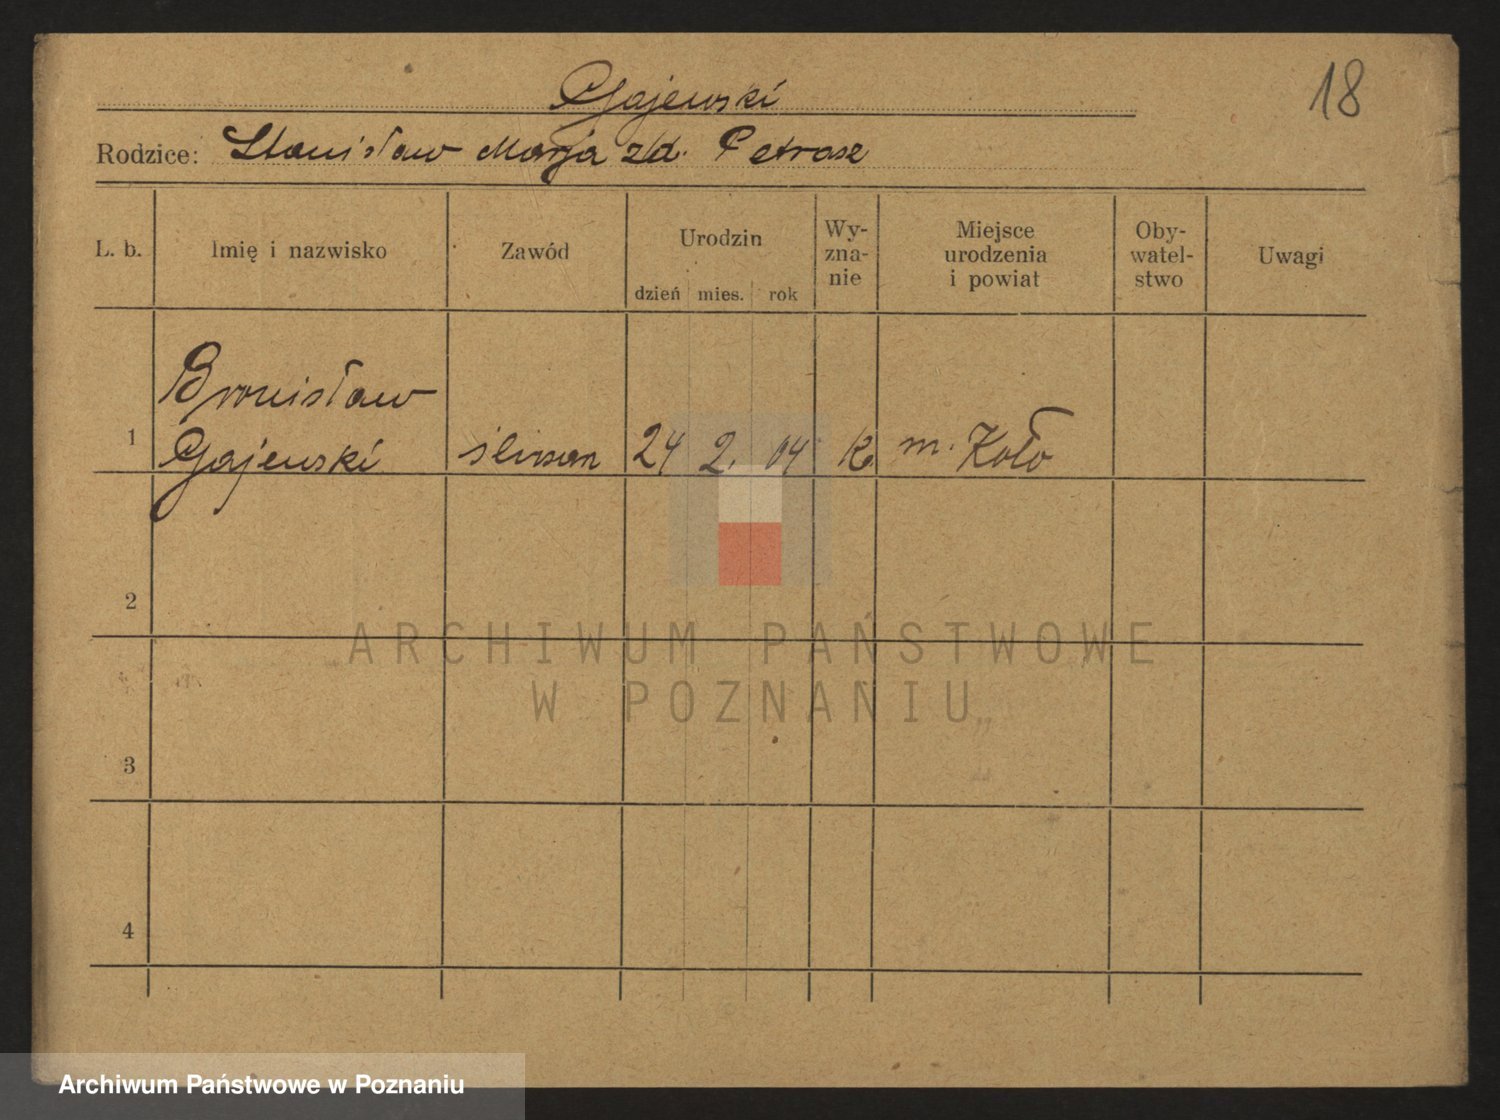 18
Gajewski
Rodzice: Stanisław Marja z/d. Petrasz
L. b.
Imię i nazwisko
Zawód
Urodzin
dzień mies. rok
Wy-
zna-
nie
Miejsce
urodzenia
i powiat
Oby-
watel-
stwo
Uwagi
Bronisław
1 Gajewski ślusarz 24 2. 04 K. m. Koło
2
3
4
ARCHIWUM PAŃSTWOWE
W POZNANIU
Archiwum Państwowe w Poznaniu